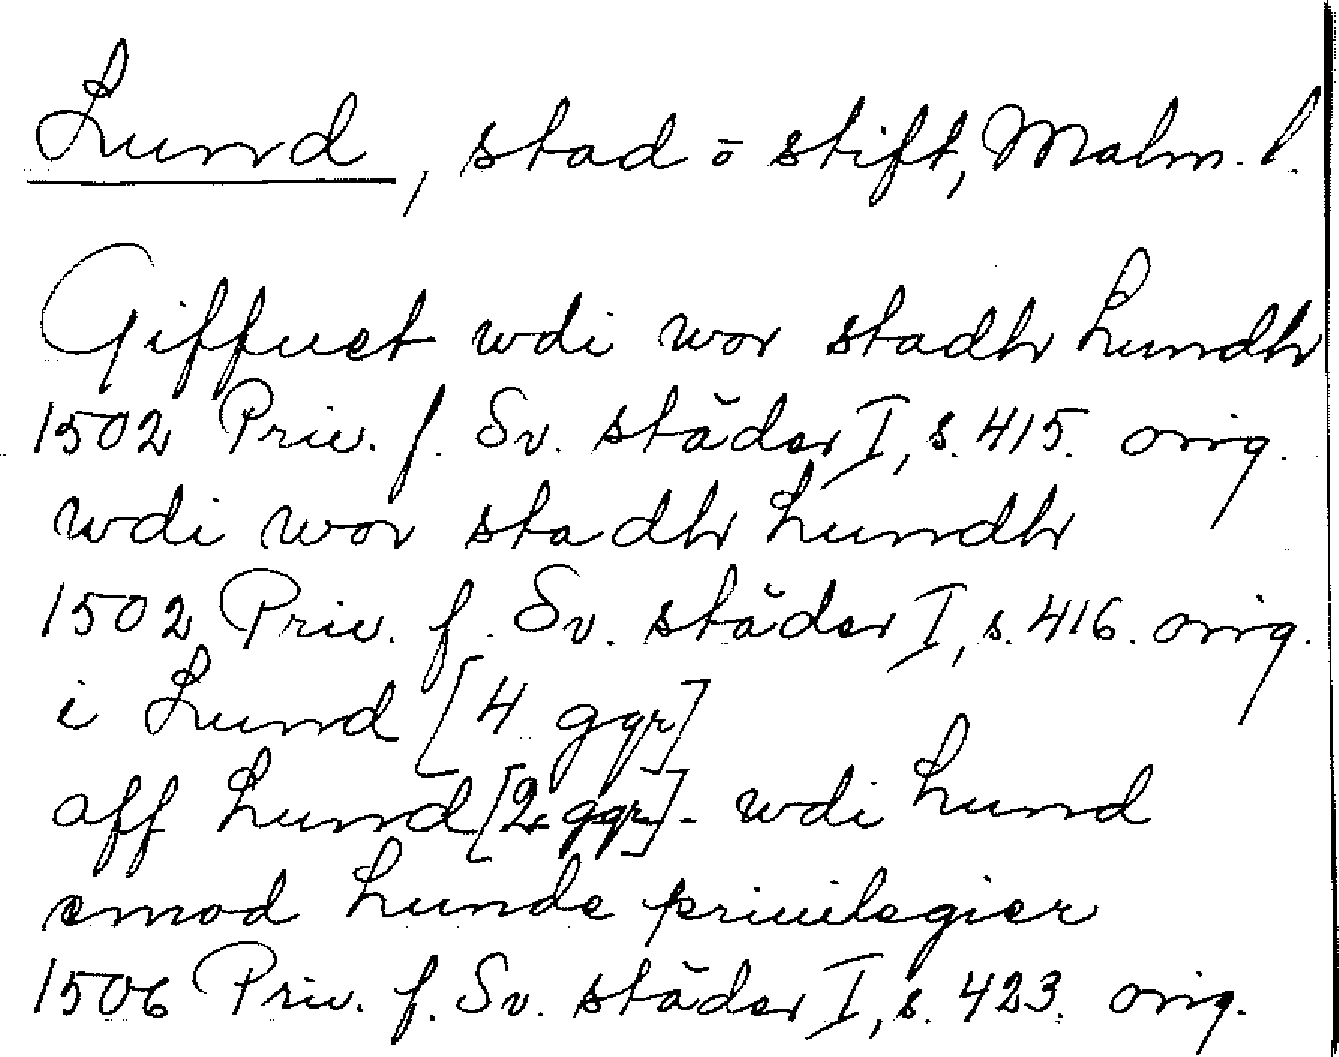 Lund, stad o stift, Malm. l.
Giffuet wdi wor stadh Lundh
1502 Priv. f. Sv. städer I, s. 415. orig.
wdi wor stadh Lundh
1502 Priv. f. Sv. städer I, s. 416. orig.
i Lund [4 ggr]
aff Lund [2 ggr]. wdi Lund
emod Lunde priuilegier
1506 Priv. f. Sv. städer I, s. 423. orig.